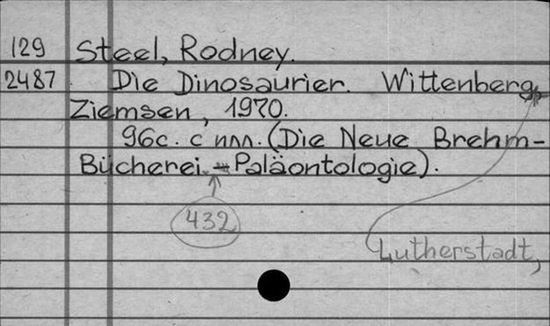 129 Steel, Rodney.
2487 Die Dinosaurier. Wittenberg,
Ziemsen, 1970.
96с. с илл. (Die Neue Brehm-
Bücherei - Paläontologie).
432
Lutherstadt,